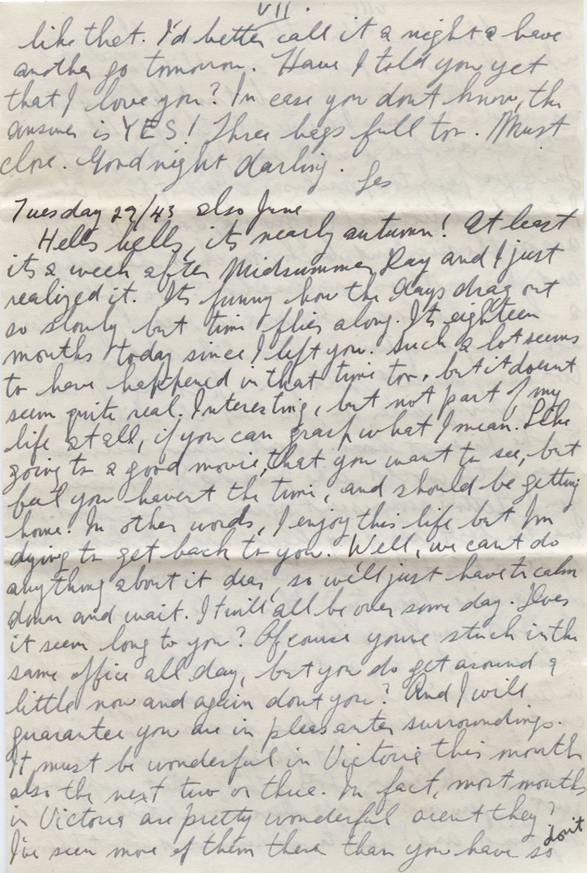 VII.
like that. I'd better call it a night & have
another go tomorrow. Have I told you yet
that I love you? In case you dont know, the
answer is YES! Three bags full too. Must
close. Goodnight darling. Les
Tuesday 29/43 also June
Hells bells, its nearly autumn! At least
its a week after Midsummer Day and I just
realized it. Its funny how the days drag out
so slowly but time flies along. Its eighteen
months today since I left you. Such a lot seems
to have happened in that time too, but it doesnt
seem quite real. Interesting, but not part of my
life at all, if you can grasp what I mean. Like
going to a good movie, that you want to see, but
feel you havent the time, and should be getting
home. In other words, I enjoy this life but I'm
dying to get back to you. Well, we cant do
anything about it dear, so we'll just have to calm
down and wait. It will all be over some day. Does
it seem long to you? Of course youre stuck in the
same office all day, but you do get around a
little now and again dont you? And I will
guarantee you are in pleasanter surroundings.
It must be wonderful in Victoria this month
also the next two or three. In fact, most months
in Victoria are pretty wonderful arent they?
I've seen more of them there than you have so
dont